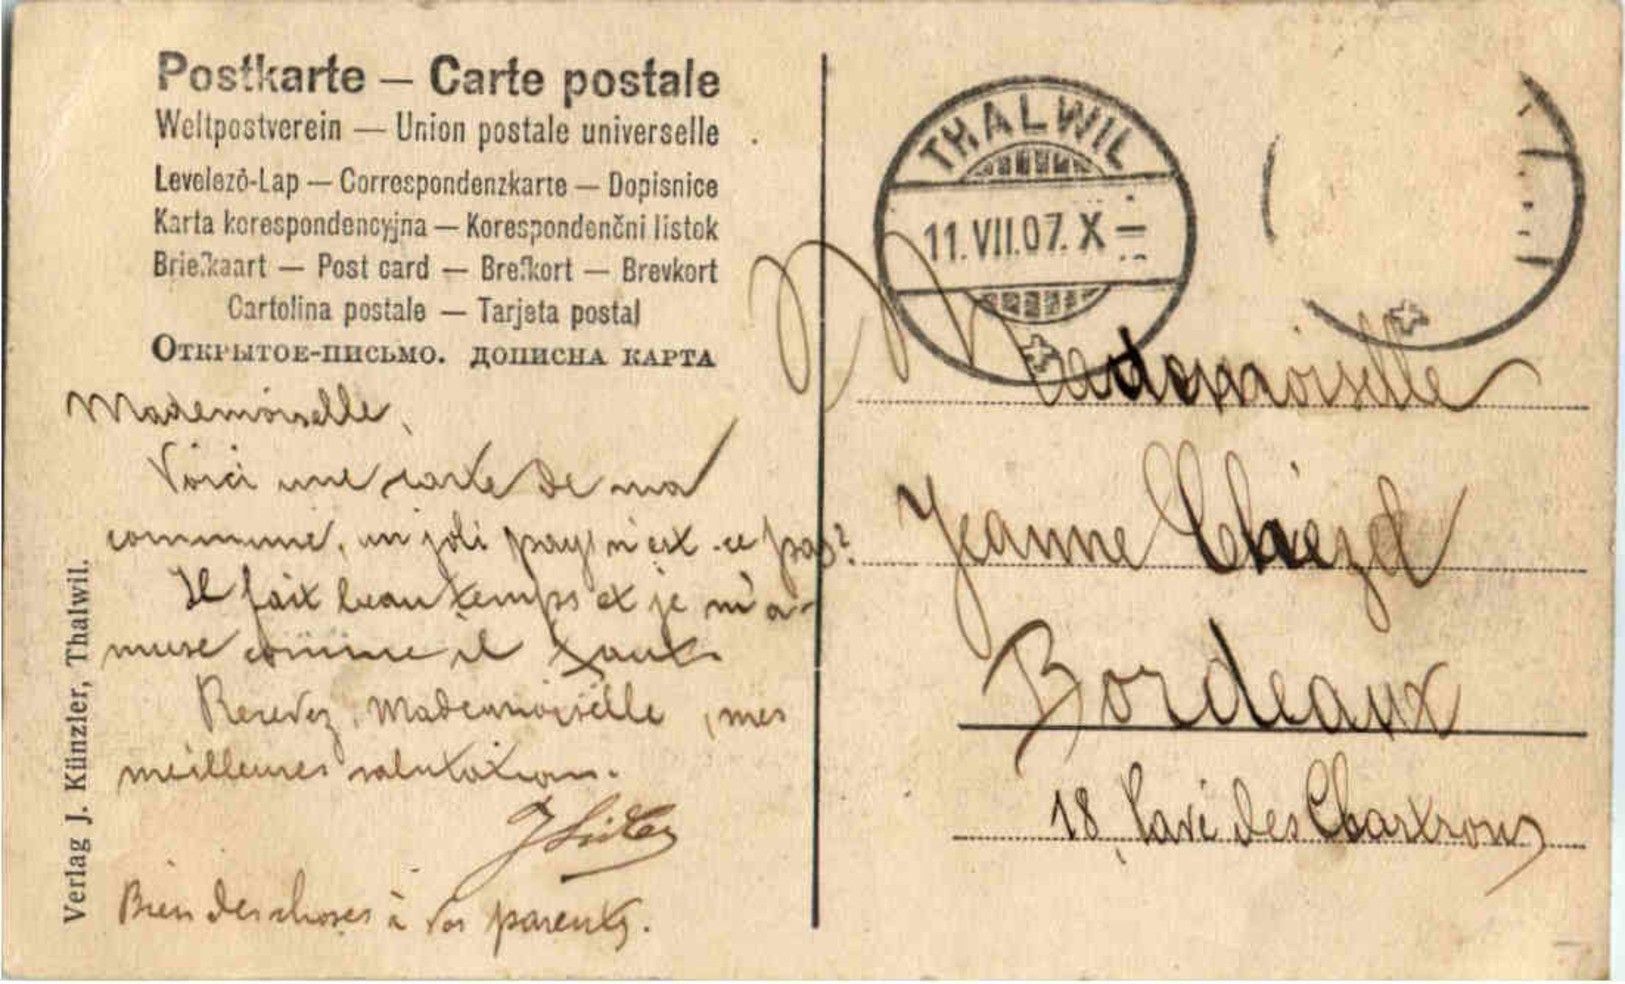 Postkarte — Carte postale
Weltpostverein — Union postale universelle
Levelező-Lap — Correspondenzkarte — Dopisnice
Karta korespondencyjna — Korespondenční listok
Briefkaart — Post card — Brefkort — Brevkort
Cartolina postale — Tarjeta postal
Открытое-письмо. дописна карта
Mademoiselle,
Voici une carte de ma
commune, un joli pays n'est-ce pas?
Il fait beau temps et je m'a-
muse comme il faut.
Recevez, Mademoiselle, mes
meilleures salutations.
Bien des choses à vos parents.
Verlag J. Künzler, Thalwil.
THALWIL
11.VII.07. X —
Mademoiselle
Jeanne
Bordeaux
18, Pavé des Chartrons